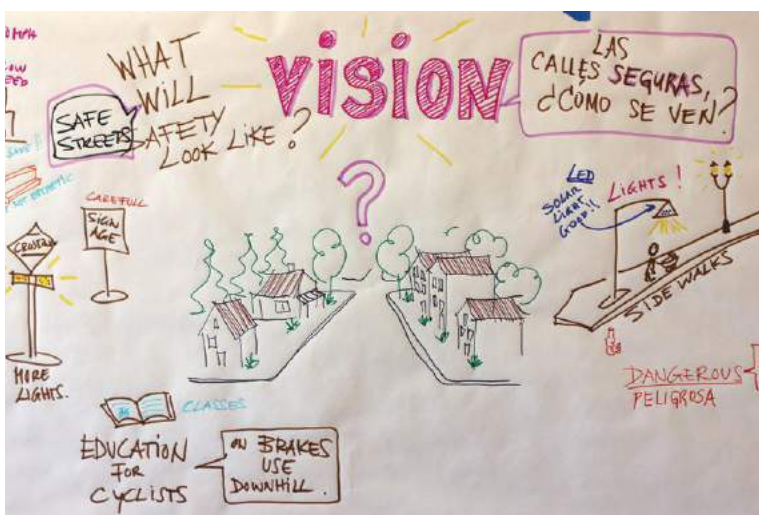 MPH
VISION
WHAT
WILL
SAFETY
LOOK LIKE?
SAFE
STREETS
LAS
CALLES SEGURAS,
¿CÓMO SE VEN?
CAREFULL
SIGN
AGE
MORE
LIGHTS.
LED
SOLAR
LIGHT
GOOD!!
LIGHTS!
SIDE WALKS
DANGEROUS
PELIGROSA
CLASSES
EDUCATION
FOR
CYCLISTS
ON BRAKES
USE
DOWNHILL.